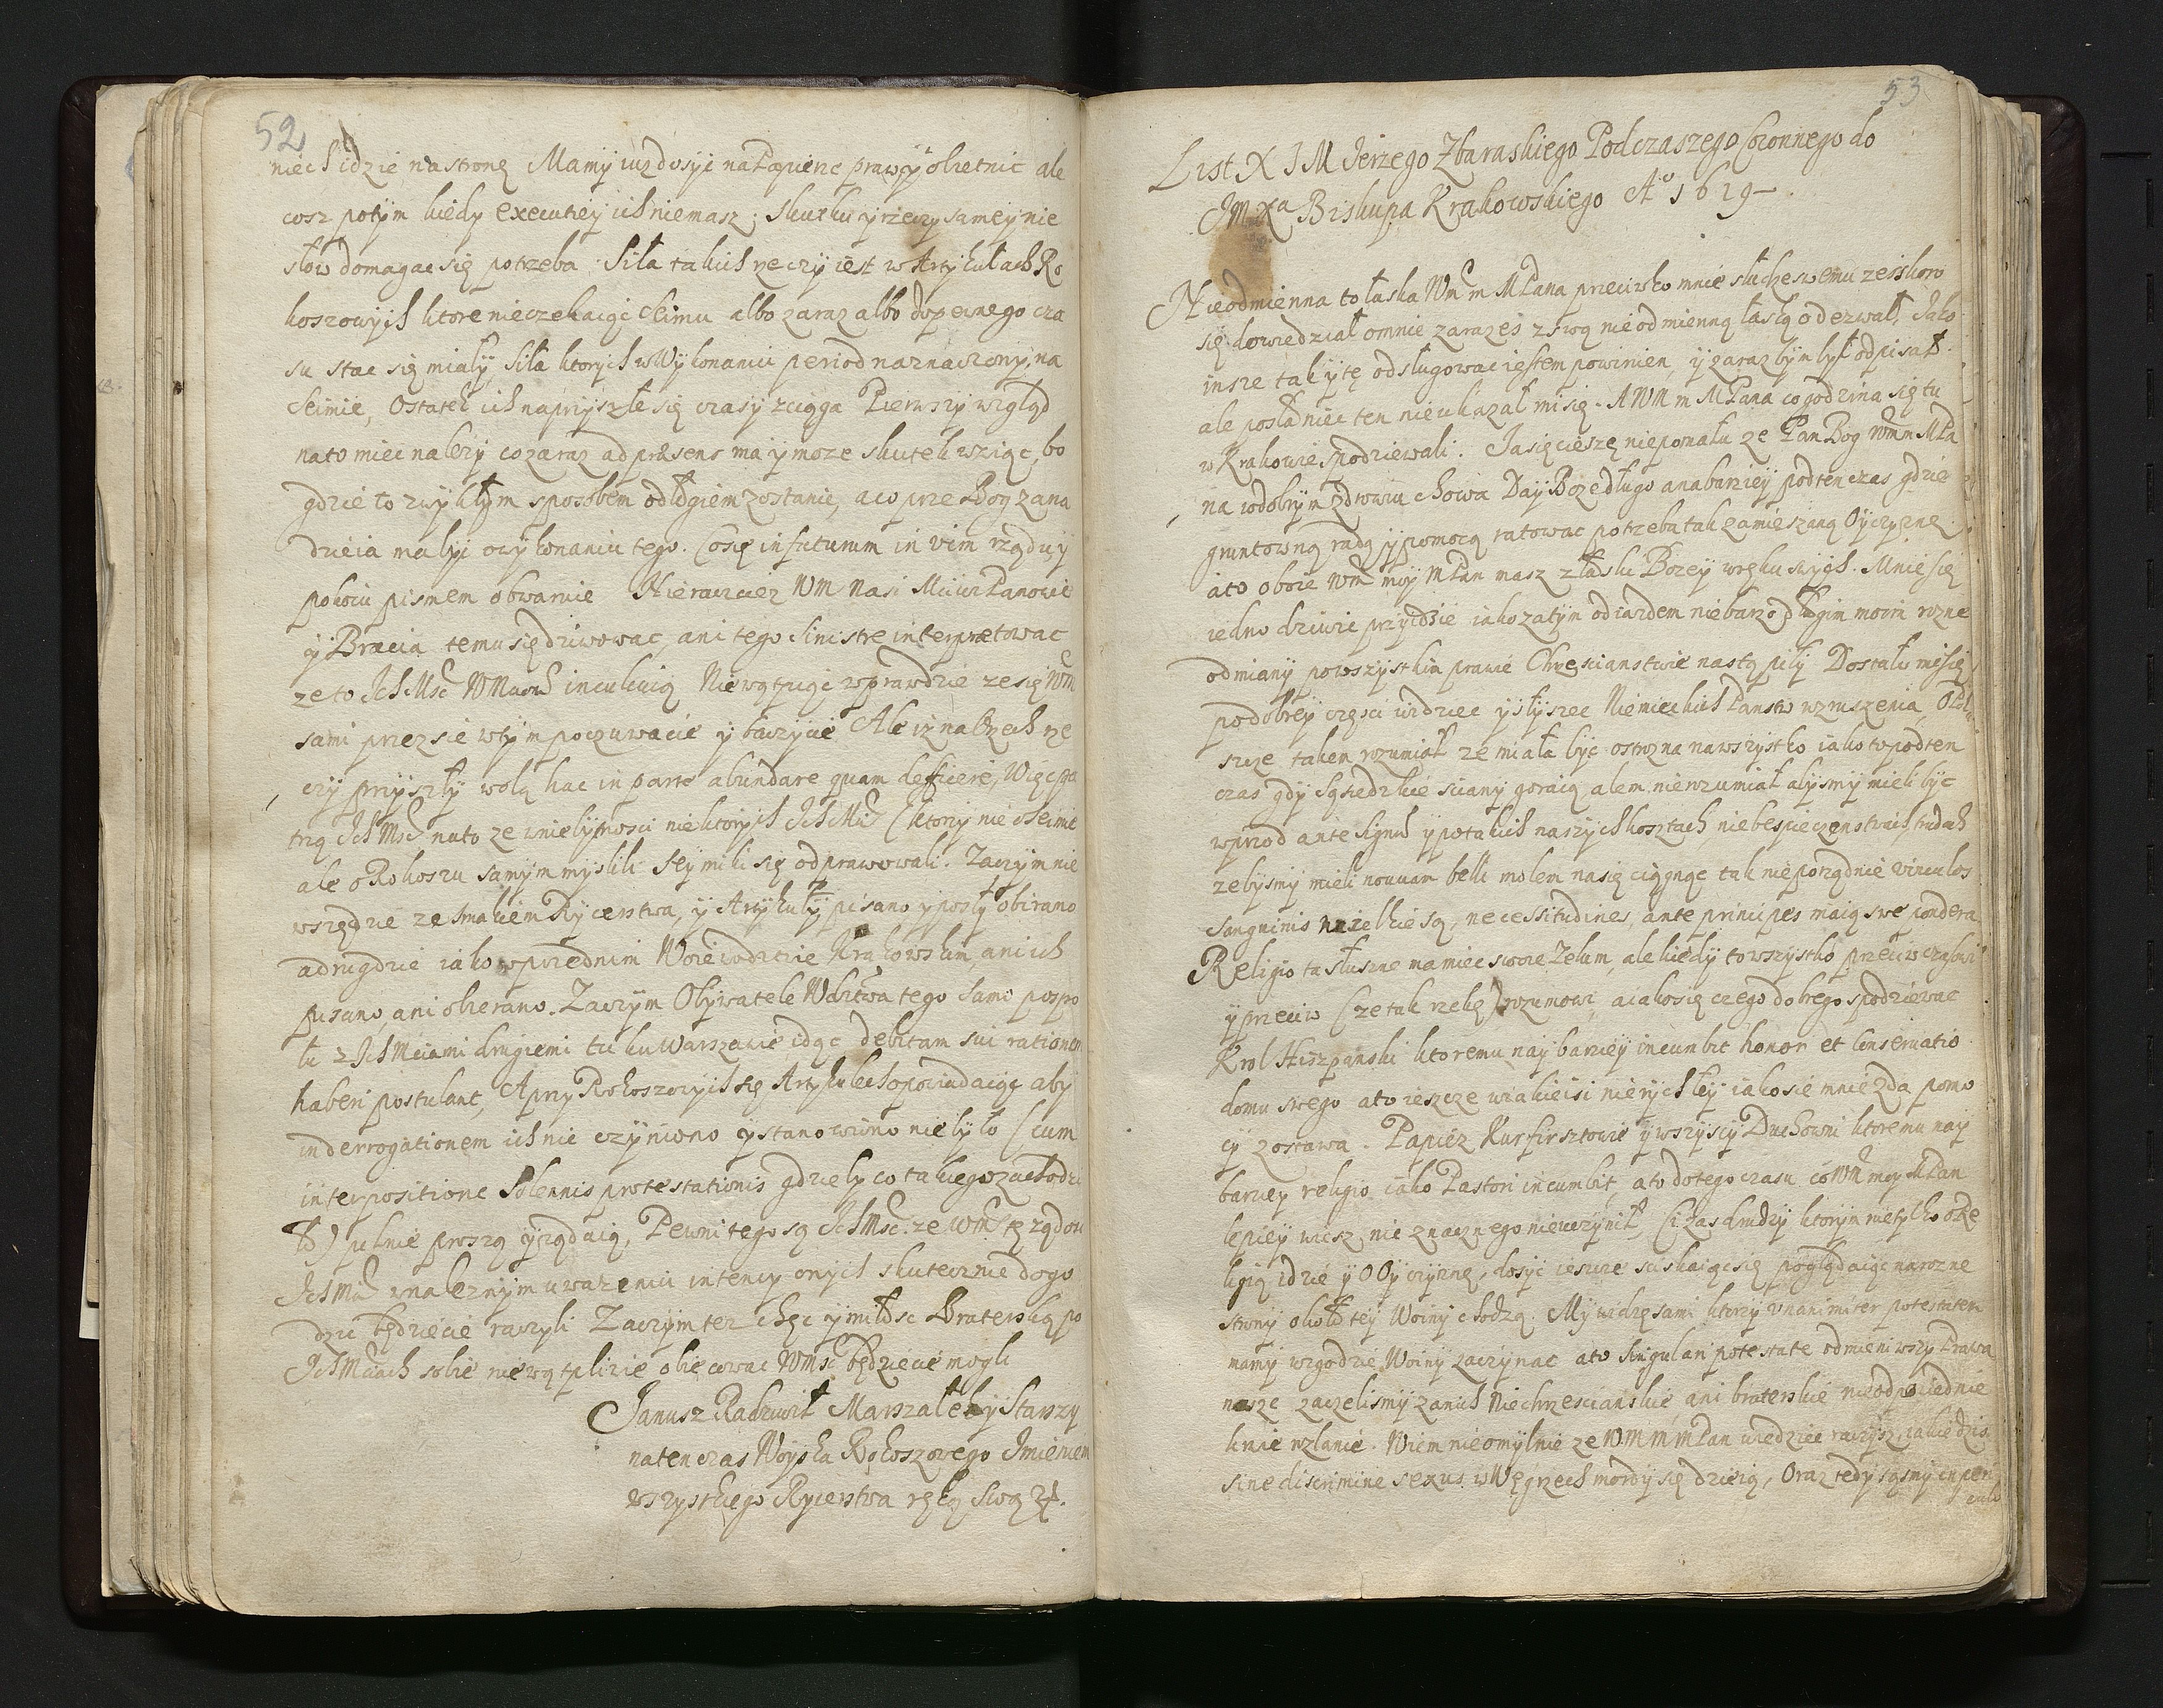 52
niech idzie na stronę Mamy iuz dosyc na Papierze prawy obietnic ale
cosz potym kiedy executiey ich niemasz: skutku y rzeczy samey nie
słow domagac się potrzeba. Siła takich rzeczy iest w Artykułach Ro
koszowych ktore nieczekaiąc Seimu albo zaraz albo do pewnego cza
su stac się miały, siła ktorych w Wykonaniu period naznaczony, na
Seimie, Ostatek ich na przyszłe się czasy zciąga Pierwszy wzgląd
na to miec nalezy co zaraz ad præsens ma y moze skutek wziąc, bo
gdzie to zwykłym sposobem odłogiem zostanie, a co prze Bog za na
dzieia ma byc o wykonaniu tego. Co się in futurum in vim rządu y
pokoiu pismem obwaruie Nieraczciez WM Nasi Mciwi Panowie
y Bracia temu się dziwowac, ani tego sinistre interpretowac
ze to IchMsc WMciom inculcuią Niewątpiąc wprawdzie ze się WM
sami przez sie w tym poczuwacie y baczycie Ale iz na obzech rze
czy przyszły wolą hac in parte abundare quam deficere, Więc pa
trzą IchMsc na to ze w niebytnosci niektorych IchMsc (ktorzy nie o Seimie
ale o Rokoszu samym myslili Seymiki się odprawowali. Zaczym nie
wszędzie ze smakiem Rycerstwa, y Artykuły pisano y posły obirano
a drugdzie iako w przednim Woiewodztwie Krakowskim, ani ich
pisano, ani obierano. Zaczym Obywatele Wdztwa tego samo pospo
łu z IchMciami drugiemi tu ku Warszawie idąc debitam sui rationem
haberi postulant, A przy Rokoszowych się Artykulech opowiadaiąc aby
in derrogationem ich nic czyniono y stanowiono nie było (cum
interpositione solennis protestationis gdzieby co takiego zachodzi
ło) pilnie proszą y ządaią, Pewni tego są IchMsc. ze WMsc tę ządou
IchMsc w naleznym uwazeniu intency onych skutecznie dogo
dzic będziecie raczyli Zaczym tez chęc y miłosc Braterską po
IchMciach sobie niewątpliwie obiecowac WMsc będziecie mogli
Janusz Radziwił Marszałek y Starszy
na ten czas Woyska Rokoszowego Imieniem
wszystkiego Rycerstwa ręką swą
53
List X J M Jerzego Zbaraskiego Podczaszego Coronnego do
JM Xa Biskupa Krakowskiego Aº 1619
Nieodmienna to łaska Wm m MPana przeciwko mnie słudze swemu ze iskoro
się dowiedział o mnie zarazes z swą nieodmienną łaską odezwał, Jako
insze tak y tę odsługowac iestem powinien, y zaraz bym był odpisał.
ale posłaniec ten nie ukazał mi się. A WM m MPana co godzina się tu
w Krakowie spodziewali. Ja się cieszę niepomału ze Pan Bog WMm MPa
na w dobrym zdrowiu chowa Day Boze długo a nabarziey pod ten czas gdzie
gruntowną radą y pomocą ratowac potrzeba tak zamieszaną Oyczyznę.
a to oboie Wm moy MPan masz z łaski Bozey w ręku swych. Mnie się
iedno dziwic przydzie iako za tym odiazdem niebarzo długim moim rozne
odmiany po wszystkim prawie Chrescianstwie nastąpiły Dostało mi się
po dobrey częsci widziec y słyszec Niemieckich Panstw wzruszenia, O Pol
szcze takem rozumiał ze miała byc ostrozna na wszystko iako to pod ten
czas gdy sąsiedzkie sciany goraią alem nie rozumiał abysmy mieli byc
wprzod ante signum y po takich naszych kosztach, niebespieczenstwach, trudach
zebysmy mieli nouuam belli molem na się ciągnąc tak nieporządnie vinculos
sanguinis wielkie są, necessitudines, ante principes maią swe pondera
Religio ta słusznie ma miec swoie Zelum, ale kiedy to wszystko przeciw czasowi
y przeciw (ze tak rzekę) rozumowi, a iako się czego dobrego spodziewac
Krol Hiszpanski ktoremu naybarziey incumbit honor et conseruatio
domu swego a to ieszcze w iakieisi nierychłey iako sie mnie zda pomo
cy zostawa. Papiez Kurfirsztowie y wszyscy Duchowni ktoremu nay
barziey religio iako Pastori incumbit, a to do tego czasu co WM moy MPan
lepiey wiesz, nic znacznego nieuczynił, Ci zas drudzy ktorym nie tylko o Re
ligią idzie y o Oyczyznę, dosyc ieszcze sciskaiąc się poglądaiąc na rozne
strony około tey Woiny chodzą. My widzę sami ktorzy vnanimiter potestatem
mamy w zgodzie Woiny zaczynac a to singulari potestate odmieniwszy Prawa
nasze zaczelismy zanich Niechrzescianskie, ani braterskie nieodpowiednie
krwie rozlanie. Wiem nieomylnie ze WM m MPan wiedziec raczysz, iakie dzis
sine discrimine sexus w Węgrzech mordy się dzieią, Oraz tedy ząsmy in peri
culo